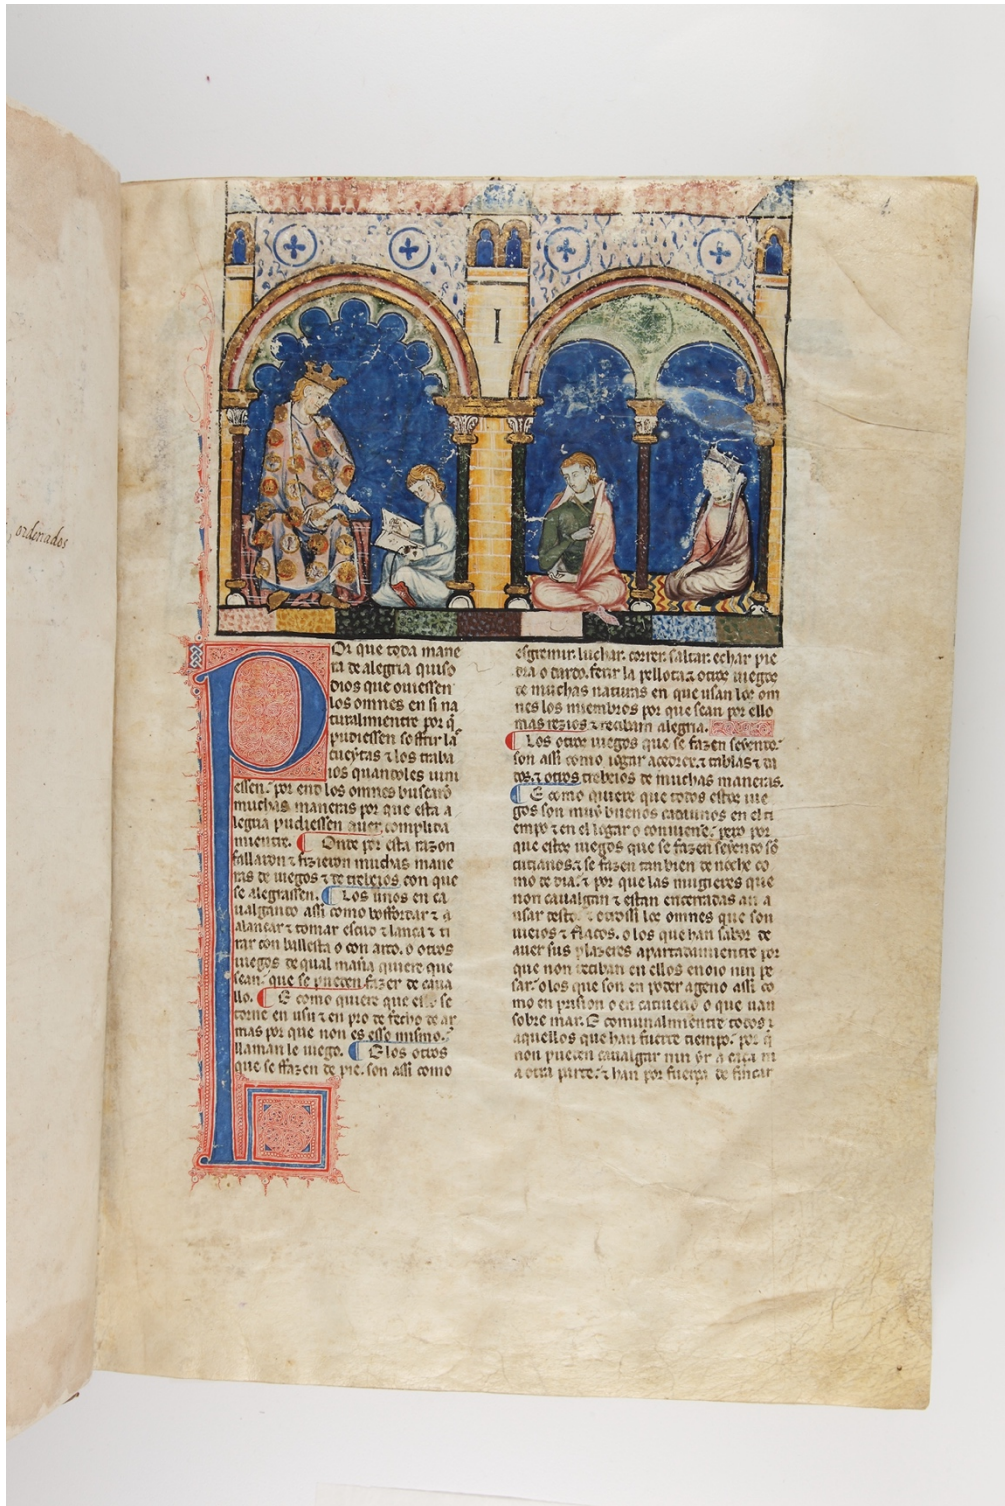 ordenados
I
Por que toda mane
ra de alegria quiso
dios que ouiessen
los omnes en si na
turalmientre por q̃
pudiessen soffrir las
cueytas ⁊ los traba
ios quandoles uini
essen. por end los omnes buscarõ
muchas maneras por que esta a
legria pudiessen auer complida
mientre. Onde por esta razon
fallaron ⁊ fizieron muchas mane
ras de iuegos ⁊ de trebeios con que
se alegrassen. Los unos en ca
ualgando assi como boffordar ⁊ a
alançar ⁊ tomar escud ⁊ lança ⁊ ti
rar con ballesta o con arco. o otros
iuegos de qual maña quiere que
sean. que se pueden fazer de caua
llo. E como quiere que esso se
torne en usu ⁊ en pro de fecho de ar
mas por que non es esso mismo.
llaman le iuego. E los otros
que se ffazen de pie. son assi como
esgremir. luchar. correr. saltar. echar pie
dra o dardo. ferir la pellota ⁊ otros iuegos
de muchas naturas en que usan los om
nes los miembros por que sean por ello
mas rezios ⁊ reciban alegria.
Los otros iuegos que se fazen seyendo.
son assi como iogar açedrex. ⁊ tablas ⁊ da
dos. ⁊ otros trebeios de muchas maneras.
E como quiere que todos estos iue
gos son muy buenos cadaunos en el ti
empo ⁊ en el logar o conuiene. pero por
que estos iuegos que se fazen seyendo sõ
cutianos. ⁊ se fazen tan bien de noche co
mo de dia. ⁊ por que las mugieres que
non caualgan ⁊ estan encerradas an a
usar desto. ⁊ otrossi los omnes que son
uieios ⁊ flacos. o los que han sabor de
auer sus plazeres apartadamientre por
que non reciban en ellos enoio nin pe
sar. o los que son en poder ageno assi co
mo en prision o en catiuerio o que uan
sobre mar. E comunalmientre todos
aquellos que han fuerte tiempo. por q̃
non pueden caualgar nin yr a caça ni
a otra parte. ⁊ han por fuerça de fincar